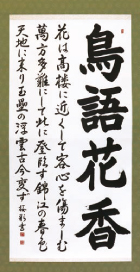 鳥語花香
花は高楼に近くして客心を傷ましむ
萬方多難にして此に登臨す錦江の春色
天地に来り玉壘の浮雲古今変ず